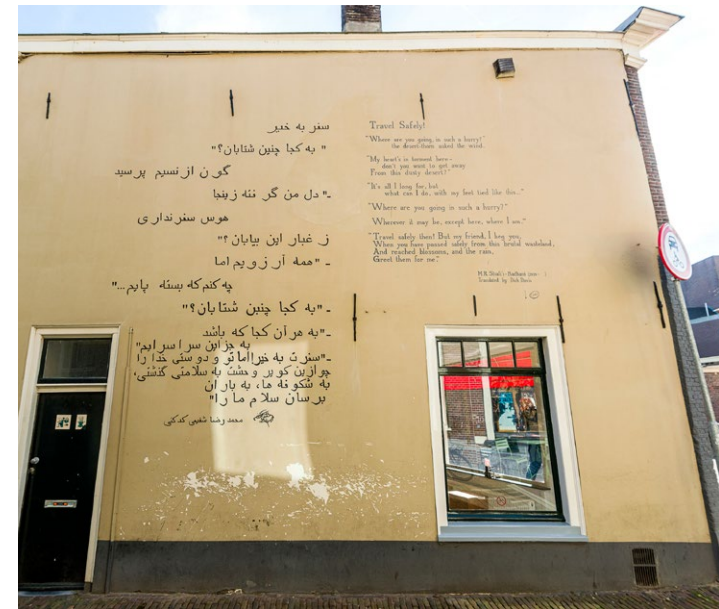 سفر به خیر
" به کجا چنین شتابان؟"
گون از نسیم پرسید
ـ" دل من گرفته زینجا
هوس سفر نداری
ز غبار این بیابان؟"
ـ "همه آرزویم اما
چه کنم که بسته پایم..."
ـ "به کجا چنین شتابان؟"
ـ "به هر آن کجا که باشد
به جز این سرا سرایم"
ـ "سفرت به خیر! اما تو و دوستی خدا را
چو ازین کویر وحشت به سلامتی گذشتی،
به شکوفه ها، به باران
برسان سلام ما را"
محمد رضا شفیعی کدکنی
Travel Safely!
"Where are you going, in such a hurry?"
the desert-thorn asked the wind.
"My heart's in torment here -
don't you want to get away
From this dusty desert?"
"It's all I long for, but
what can I do, with my feet tied like this..."
"Where are you going in such a hurry?"
"Wherever it may be, except here, where I am."
"Travel safely then! But my friend, I beg you,
When you have passed safely from this brutal wasteland,
And reached blossoms, and the rain,
Greet them for me."
M.R. Shafi'i-Kadkani
Translated by Dick Davis